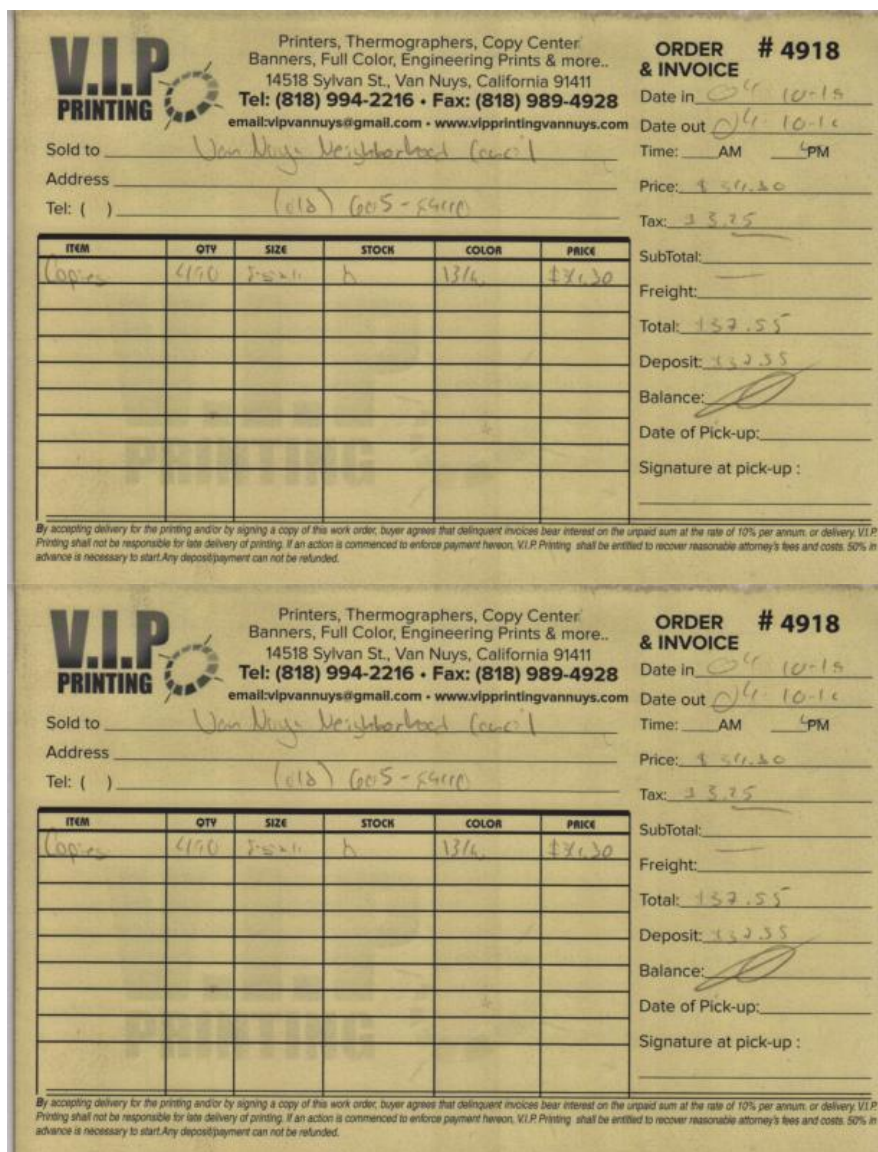 V.I.P
PRINTING
Printers, Thermographers, Copy Center
Banners, Full Color, Engineering Prints & more..
14518 Sylvan St., Van Nuys, California 91411
Tel: (818) 994-2216 • Fax: (818) 989-4928
email:vipvannuys@gmail.com • www.vipprintingvannuys.com
ORDER # 4918
& INVOICE
Date in 04 10-15
Date out 04-10-1
Time: AM PM
Sold to Van Nuys Neighborhood Council
Address
Tel: ( ) (818) 605-
Price: $
Tax: $ 3.25
SubTotal:
Freight:
Total: $37.55
Deposit:
Balance:
Date of Pick-up:
Signature at pick-up :
ITEM QTY SIZE STOCK COLOR PRICE
Copies 490
PRINTING
By accepting delivery for the printing and/or by signing a copy of this work order, buyer agrees that delinquent invoices bear interest on the unpaid sum at the rate of 10% per annum. or delivery. V.I.P.
Printing shall not be responsible for late delivery of printing. If an action is commenced to enforce payment hereon, V.I.P. Printing shall be entitled to recover reasonable attorney's fees and costs. 50% in
advance is necessary to start.Any deposit/payment can not be refunded.
V.I.P
PRINTING
Printers, Thermographers, Copy Center
Banners, Full Color, Engineering Prints & more..
14518 Sylvan St., Van Nuys, California 91411
Tel: (818) 994-2216 • Fax: (818) 989-4928
email:vipvannuys@gmail.com • www.vipprintingvannuys.com
ORDER # 4918
& INVOICE
Date in 04 10-15
Date out 04-10-1
Time: AM PM
Sold to Van Nuys Neighborhood Council
Address
Tel: ( ) (818) 605-
Price: $
Tax: $ 3.25
SubTotal:
Freight:
Total: $37.55
Deposit:
Balance:
Date of Pick-up:
Signature at pick-up :
ITEM QTY SIZE STOCK COLOR PRICE
Copies 490
PRINTING
By accepting delivery for the printing and/or by signing a copy of this work order, buyer agrees that delinquent invoices bear interest on the unpaid sum at the rate of 10% per annum. or delivery. V.I.P.
Printing shall not be responsible for late delivery of printing. If an action is commenced to enforce payment hereon, V.I.P. Printing shall be entitled to recover reasonable attorney's fees and costs. 50% in
advance is necessary to start.Any deposit/payment can not be refunded.